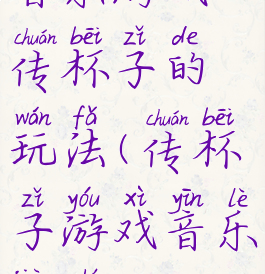 chuán bēi zǐ de
传杯子的
wán fǎ chuán bēi
玩法(传杯
zǐ yóu xì yīn lè
子游戏音乐